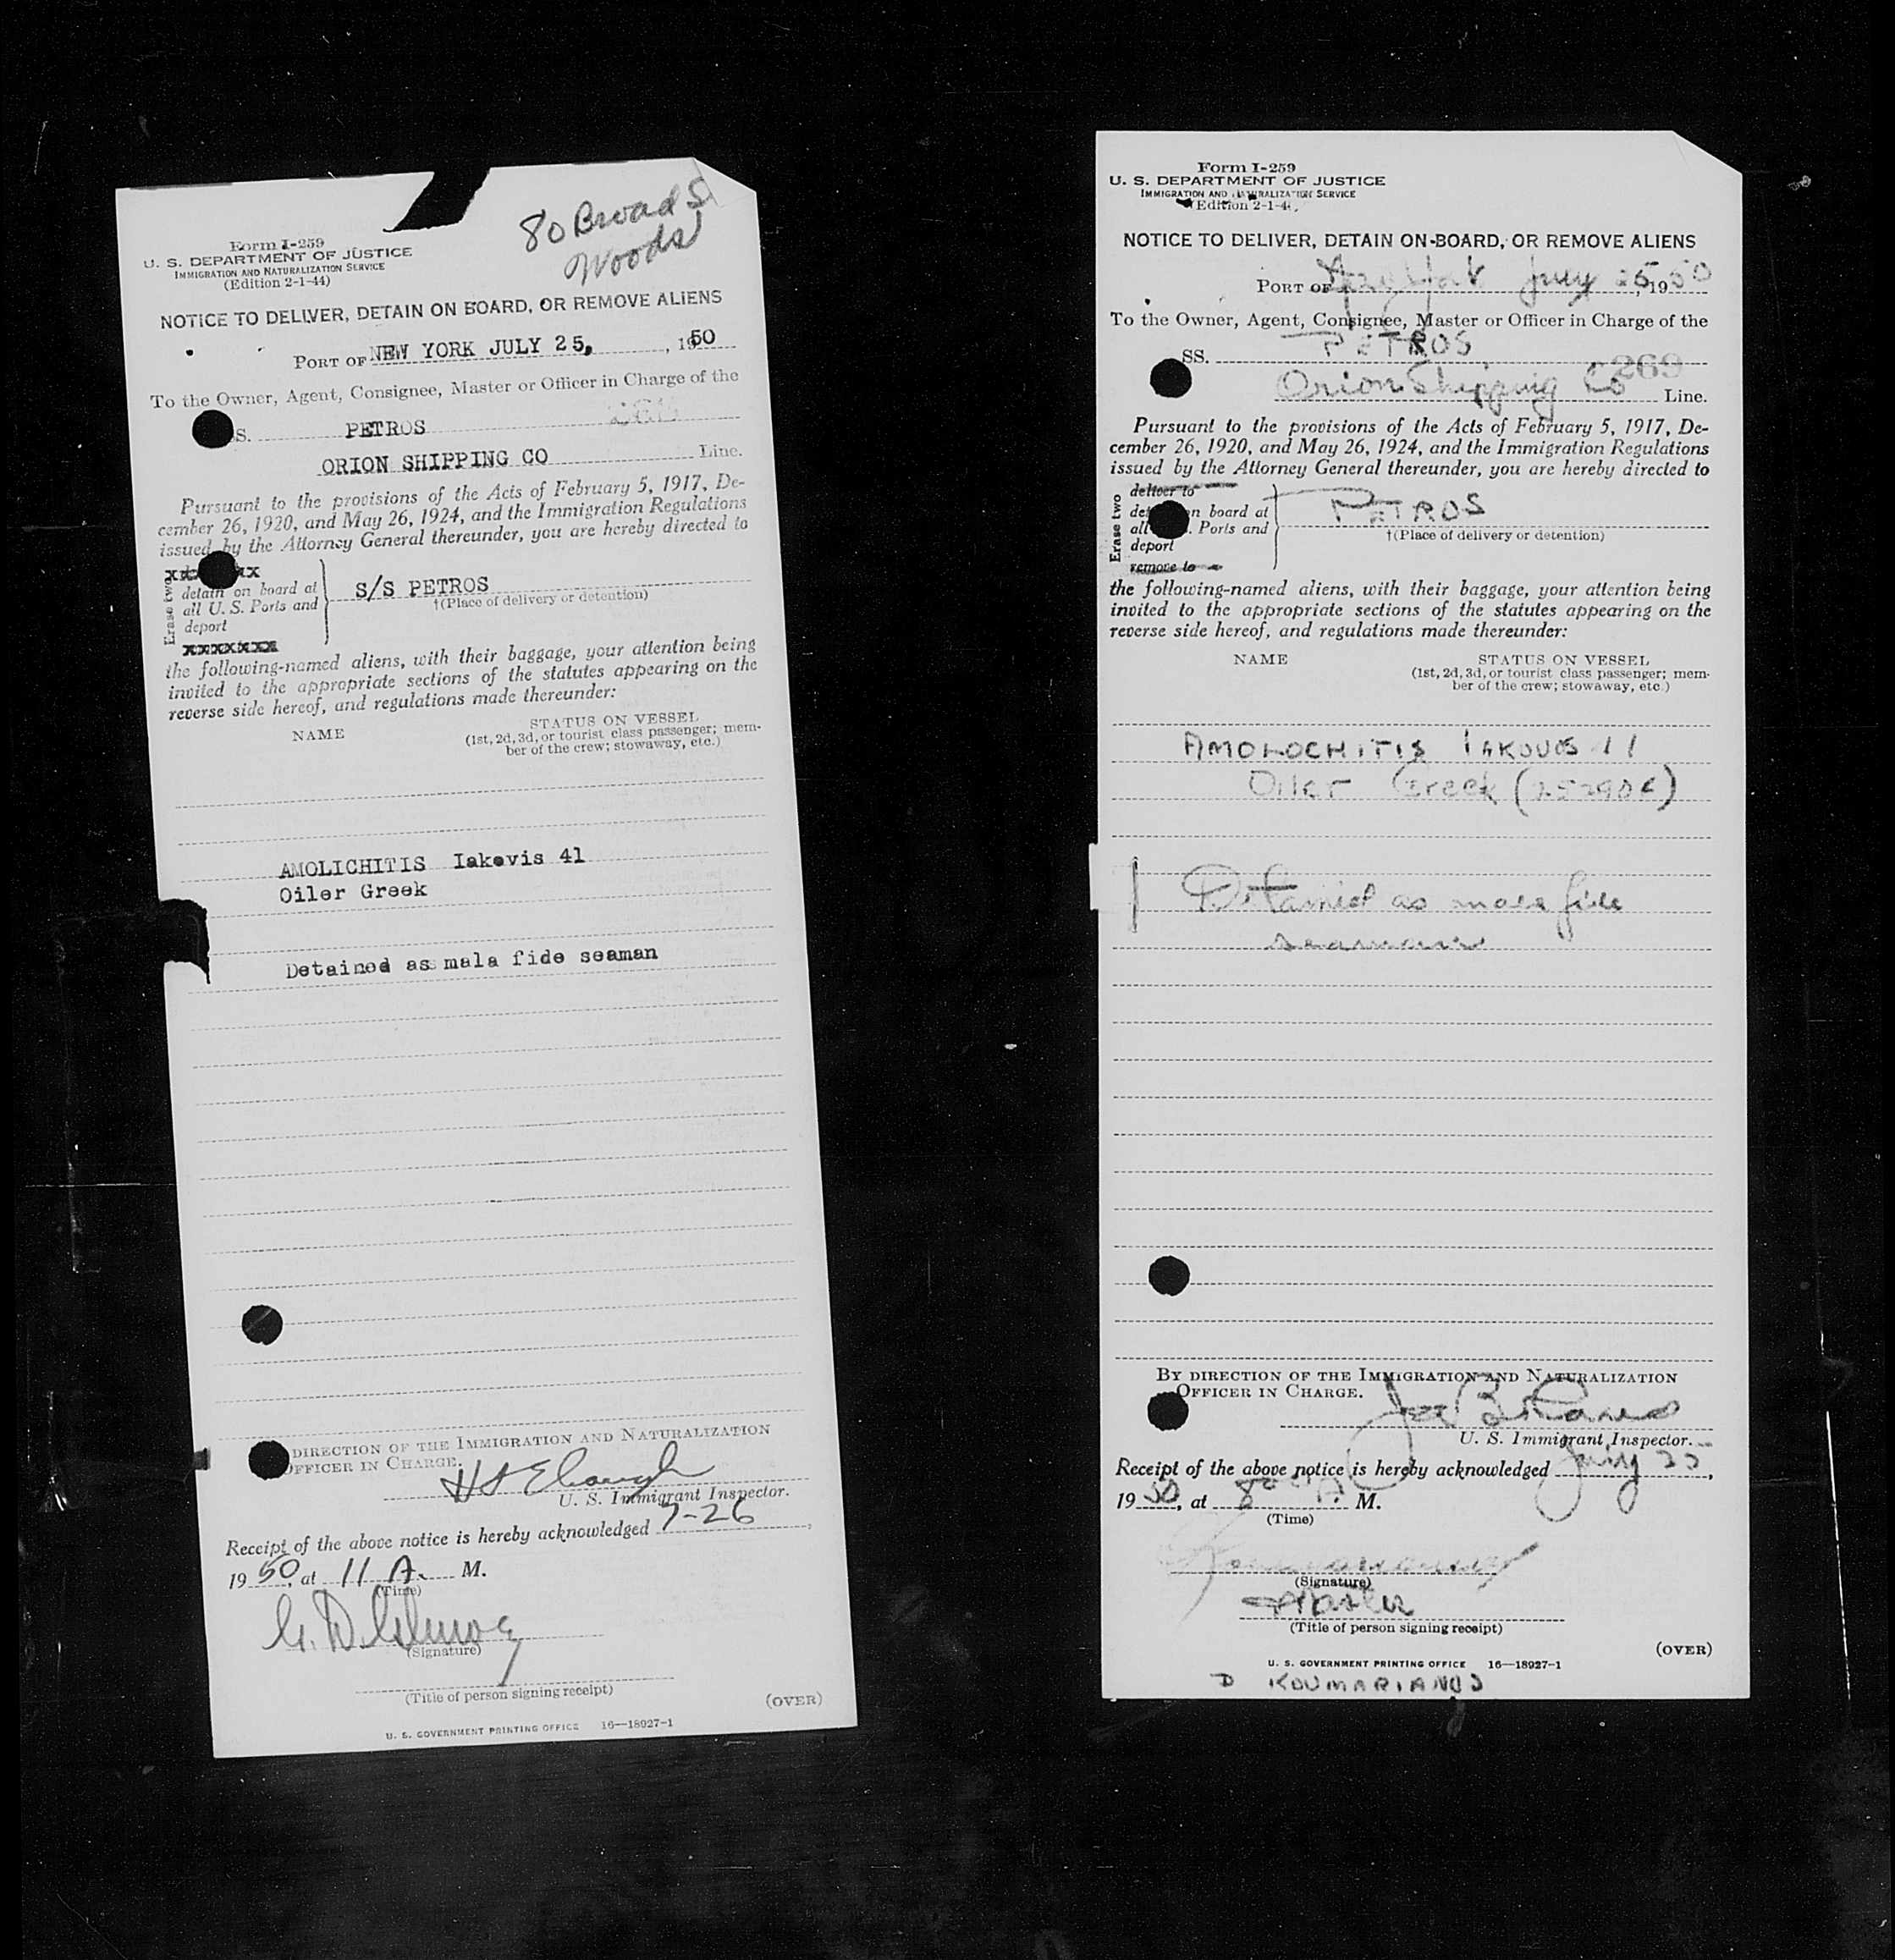 80 Broad S
Woods
Form I-259
U. S. DEPARTMENT OF JUSTICE
IMMIGRATION AND NATURALIZATION SERVICE
(Edition 2-1-44)
NOTICE TO DELIVER, DETAIN ON BOARD, OR REMOVE ALIENS
PORT OF NEW YORK JULY 25, , 1950
To the Owner, Agent, Consignee, Master or Officer in Charge of the
S. PETROS
ORION SHIPPING CO Line.
Pursuant to the provisions of the Acts of February 5, 1917, De-
cember 26, 1920, and May 26, 1924, and the Immigration Regulations
issued by the Attorney General thereunder, you are hereby directed to
Erase two
detain on board at
all U. S. Ports and
deport
xxxxxxxx
S/S PETROS
†(Place of delivery or detention)
the following-named aliens, with their baggage, your attention being
invited to the appropriate sections of the statutes appearing on the
reverse side hereof, and regulations made thereunder:
NAME STATUS ON VESSEL
(1st, 2d, 3d, or tourist class passenger; mem-
ber of the crew; stowaway, etc.)
AMOLICHITIS Iakovis 41
Oiler Greek
Detained as mala fide seaman
DIRECTION OF THE IMMIGRATION AND NATURALIZATION
OFFICER IN CHARGE.
U. S. Immigrant Inspector.
Receipt of the above notice is hereby acknowledged 7-26,
1950, at 11 A. M.
(Time)
(Signature)
(Title of person signing receipt)
(OVER)
U. S. GOVERNMENT PRINTING OFFICE 16—18927-1
Form I-259
U. S. DEPARTMENT OF JUSTICE
IMMIGRATION AND NATURALIZATION SERVICE
(Edition 2-1-4
NOTICE TO DELIVER, DETAIN ON BOARD, OR REMOVE ALIENS
PORT OF New York July 25, 1950
To the Owner, Agent, Consignee, Master or Officer in Charge of the
SS. PETROS
269
Orion Shipping Co Line.
Pursuant to the provisions of the Acts of February 5, 1917, De-
cember 26, 1920, and May 26, 1924, and the Immigration Regulations
issued by the Attorney General thereunder, you are hereby directed to
Erase two
deliver to
n board at
all . Ports and
deport
remove to
PETROS
†(Place of delivery or detention)
the following-named aliens, with their baggage, your attention being
invited to the appropriate sections of the statutes appearing on the
reverse side hereof, and regulations made thereunder:
NAME STATUS ON VESSEL
(1st, 2d, 3d, or tourist class passenger; mem-
ber of the crew; stowaway, etc.)
AMOLOCHITIS IAKOVOS
Oiler Greek
Detained as mala fide
seaman
BY DIRECTION OF THE IMMIGRATION AND NATURALIZATION
OFFICER IN CHARGE.
U. S. Immigrant Inspector.
Receipt of the above notice is hereby acknowledged July 25,
1950, at 8 A. M.
(Time)
(Signature)
Master
(Title of person signing receipt)
(OVER)
U. S. GOVERNMENT PRINTING OFFICE 16—18927-1
D KOUMARIANOS